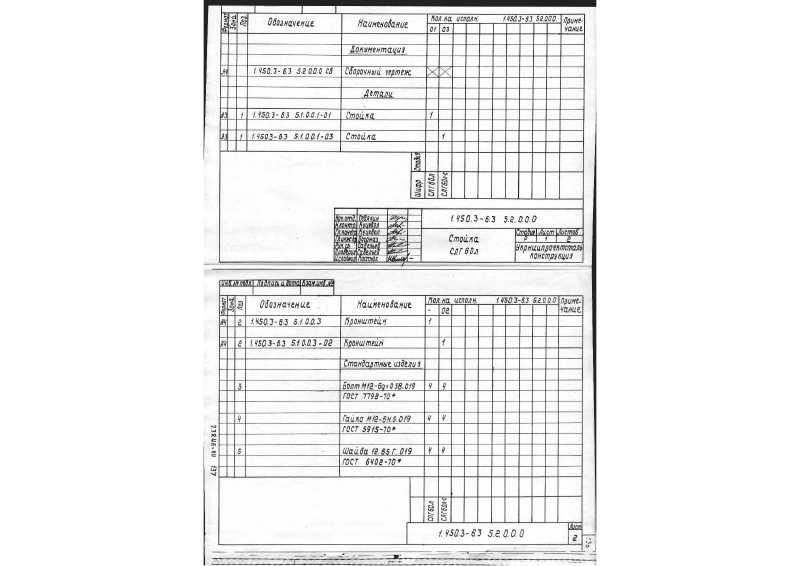 Формат Зона Поз. Обозначение Наименование Кол. на исполн. 1.450.3-6.3 5.2.0.0.0 Приме-
чание
01 03
Документация
А4 1.450.3-6.3 5.2.0.0.0 СБ Сборочный чертеж
Детали
А3 1 1.450.3-6.3 5.1.0.0.1-01 Стойка 1
А3 1 1.450.3-6.3 5.1.0.0.1-03 Стойка 1
Стадия
Шифр СЛГ60Л СЛГ60ЛС
1.450.3-6.3 5.2.0.0.0
Нач.отд.
Н.контр. Кецевол
Рук.гр. Савельев
Стойка
СЛГ 60Л
Стадия Лист Листов
Р 1 2
Укрниипроектсталь
конструкция
Инв.№ подл. Подпись и дата Взам.инв.№
Формат Зона Поз. Обозначение Наименование Кол. на исполн. 1.450.3-6.3 5.2.0.0.0 Приме-
чание
- 02
А4 2 1.450.3-6.3 5.1.0.0.3 Кронштейн 1
А4 2 1.450.3-6.3 5.1.0.0.3-02 Кронштейн 1
Стандартные изделия
3 Болт М12-6g×058.019 4 4
ГОСТ 7798-70*
4 Гайка М12-6Н.5.019 4 4
ГОСТ 5915-70*
5 Шайба 12.65Г.019 4 4
ГОСТ 6402-70*
137
СЛГ60Л СЛГ60ЛС
1.450.3-6.3 5.2.0.0.0
Лист
2